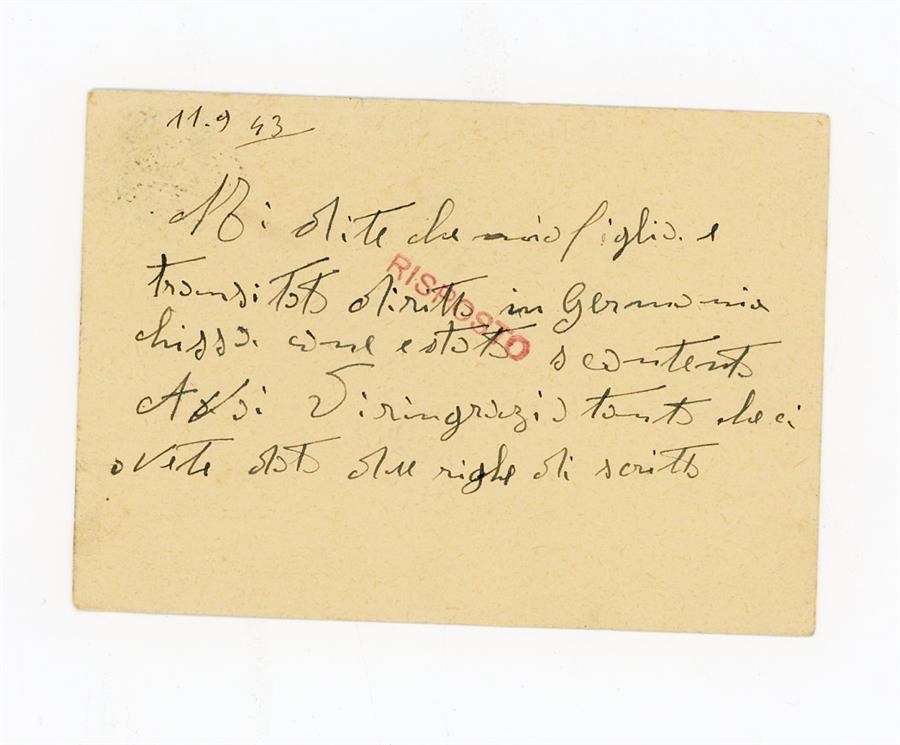 11.9 43
Mi dite che mio figlio. e
transitato diritto in Germania
chissa. come e stato scontento
Vi ringrazio tanto che ci
avete dato due righe di scritto
RISPOSTO